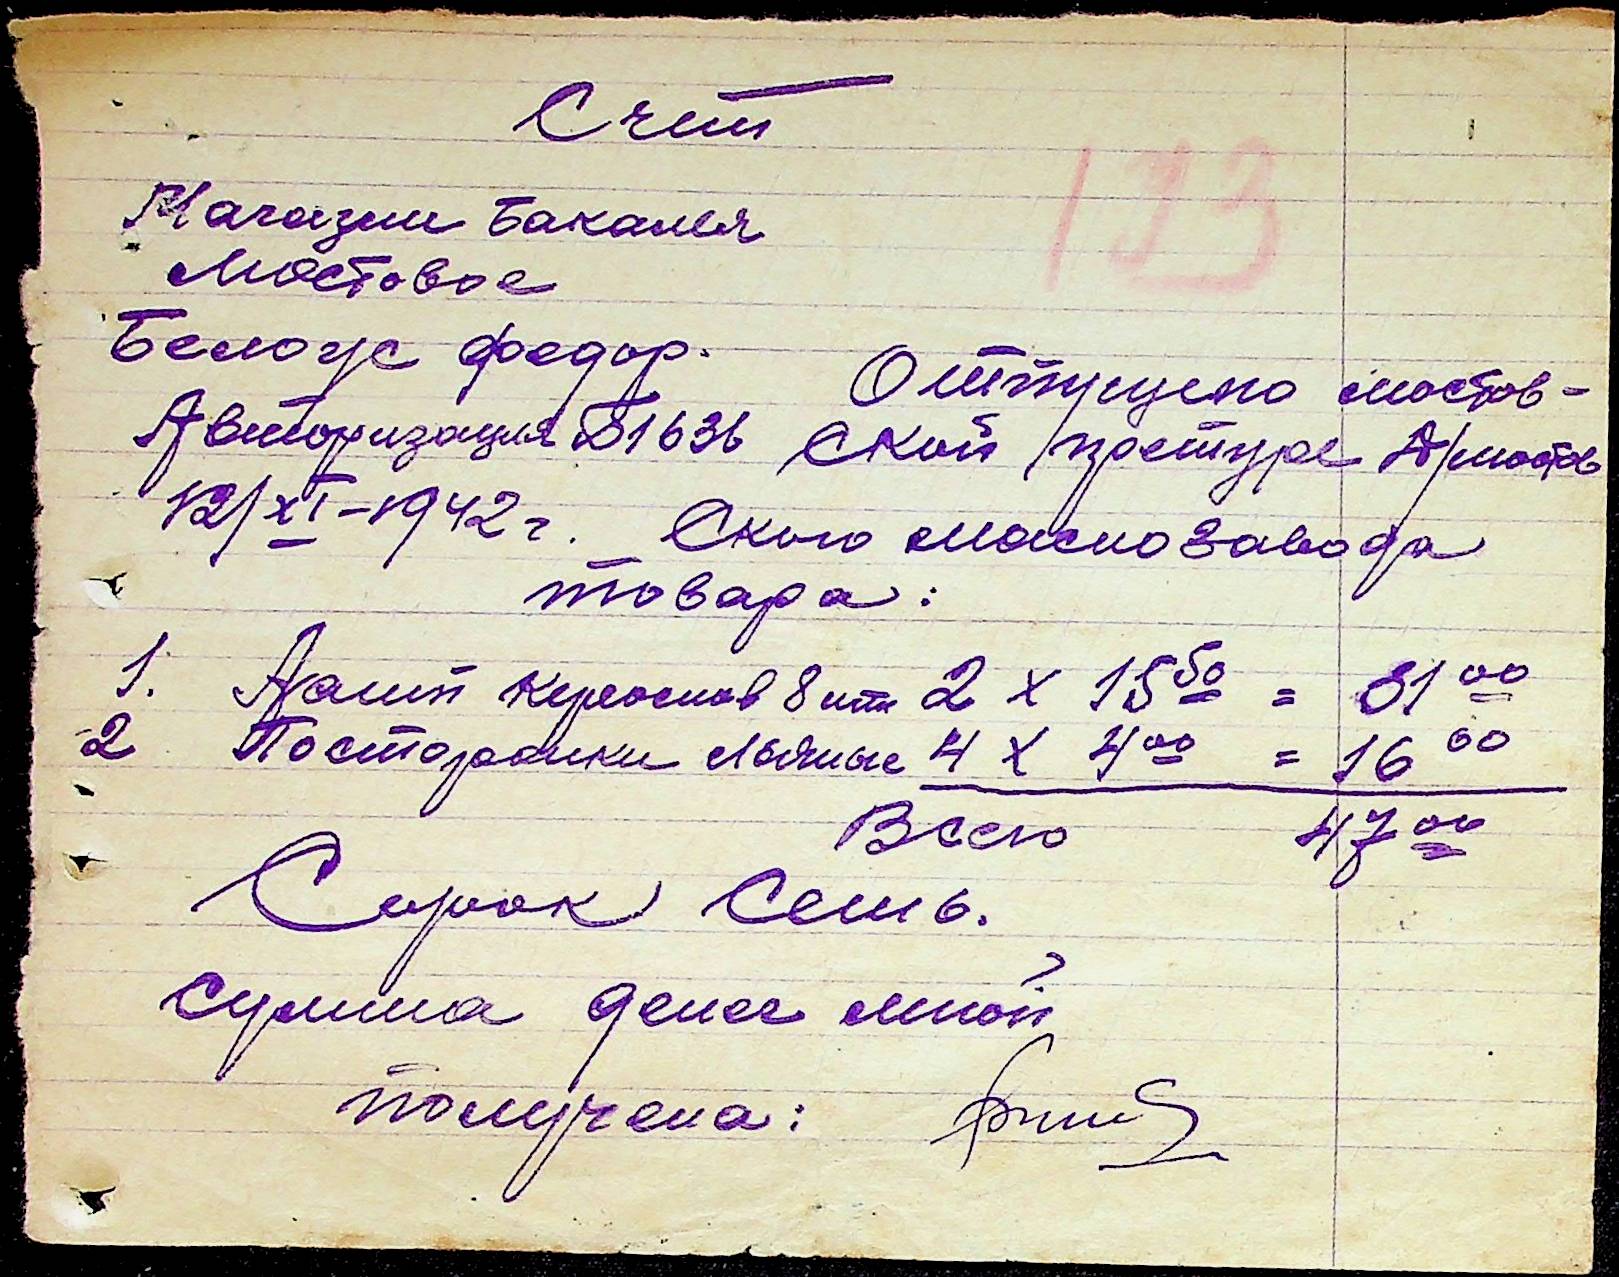 Счет
193
Магазин Бакалея
Мостовое
Белоус Федор.
Авторизация №1636
12/XI-1942 г.
Отпущено мостов-
ской претуре д/мостов
ского маслозавода
товара:
1. Ламп керосинов 8 шт 2 х 15 50 = 31 00
2 Посторонки льняные 4 х 4 00 = 16 00
Всего 47 00
Сорок семь.
сумма денег мной
получена: